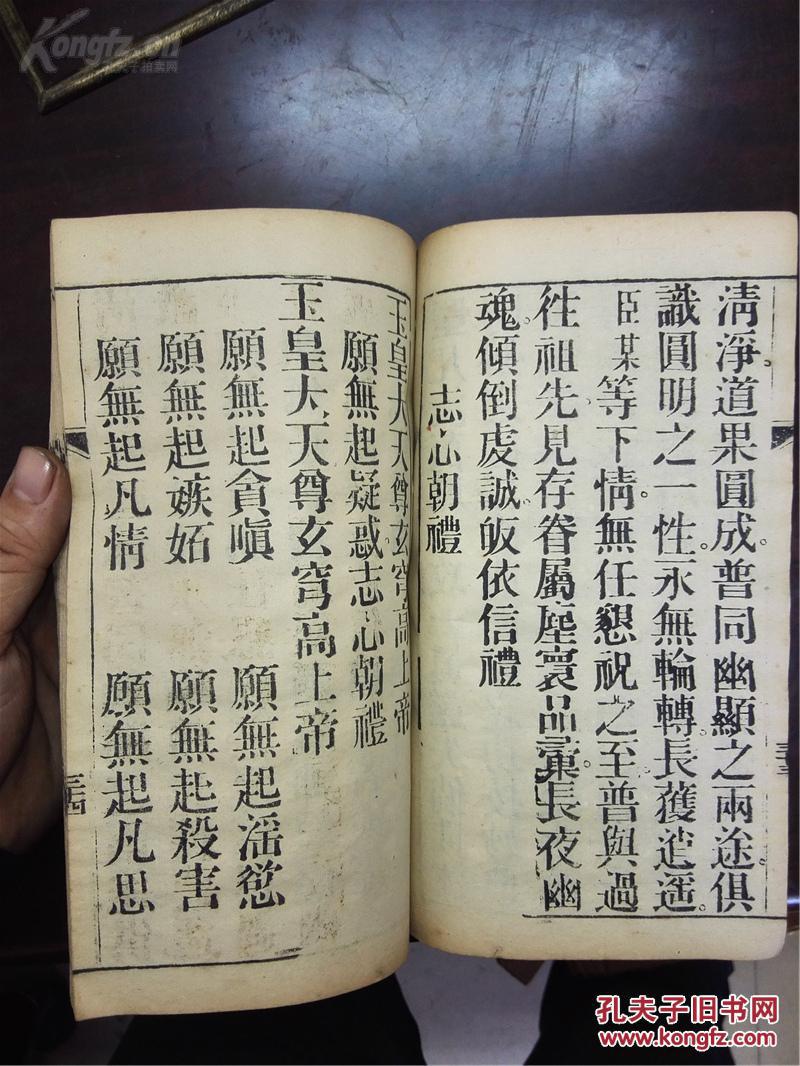 清淨道果圓成普同幽顯之兩途俱
識圓明之一性永無輪轉長獲逍遥
臣某等下情無任懇祝之至普與過
徃祖先見存眷屬塵寰品彙長夜幽
魂傾倒虔誠皈依信禮
志心朝禮
三十三
玉皇大天尊玄穹高上帝
願無起疑惑志心朝禮
玉皇大天尊玄穹高上帝
願無起貪嗔 願無起滛慾
願無起嫉妬 願無起殺害
願無起凡情 願無起凡思
三十四
Kongfz.cn
孔夫子旧书网
www.kongfz.com